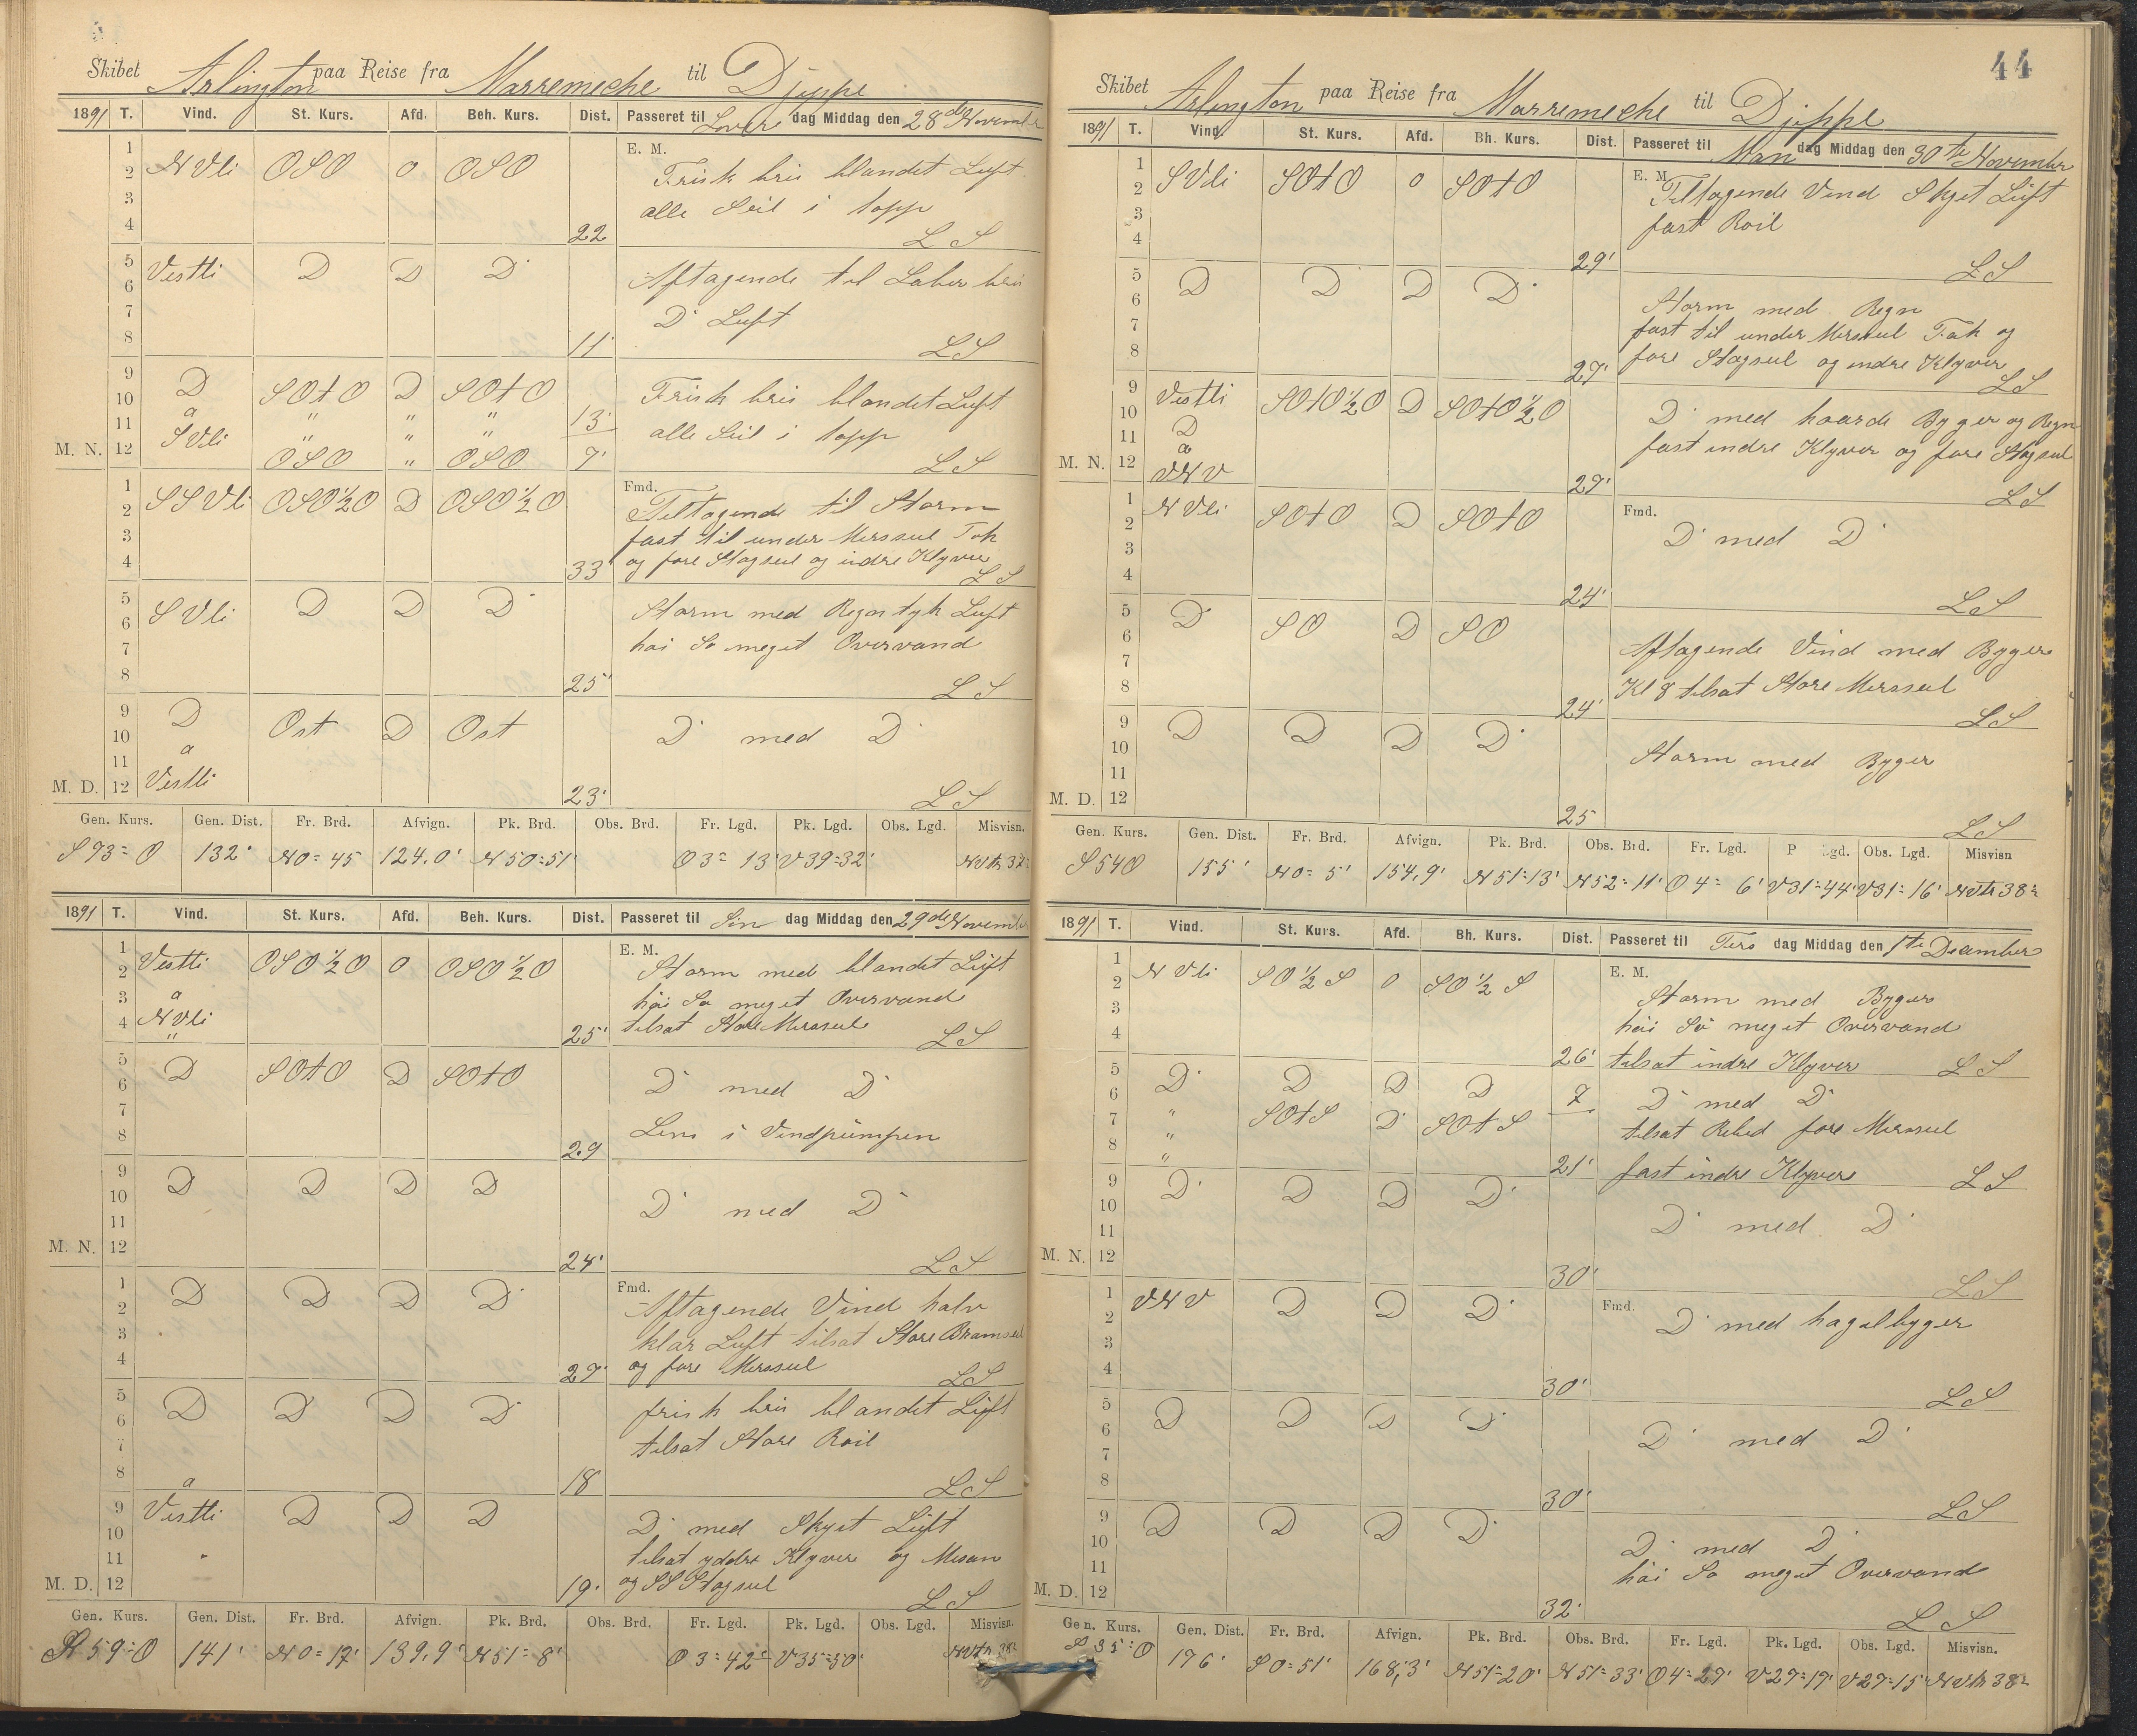 Skibet Arlington paa Reise fra Marremeche til Djeppe
1891 T. Vind. St. Kurs. Afd. Beh. Kurs. Dist. Passeret til Lover dag Middag den 28de November
1
2 NVli OSO 0 OSO E. M. Frisk bris blandet Luft
3 alle Seil i topp
4 22 LS
5
6 Vestli D D D Aftagende til Laber bris
7 D Luft
8 11 LS
9
10 D SOtO D SOtO Frisk bris blandet Luft
11 a " " " 13 alle Seil i topp
M. N. 12 SVli " " "
OSO " OSO 7' LS
1 Fmd.
2 SSVli OSO½O D OSO½O Tiltagende til Storm
3 fast til under Mersseil Fok
4 33 og fore Stagseil og indre Klyver LS
5
6 SVli D D D Storm med Regn tyk Luft
7 hai So meget Overvand
8 25' LS
9 D
10 a Ost D Ost D med D
11
M. D. 12 Vestli 23' LS
Gen. Kurs. Gen. Dist. Fr. Brd. Afvign. Pk. Brd. Obs. Brd. Fr. Lgd. Pk. Lgd. Obs. Lgd. Misvisn.
S 93=O 132' N0=45 124.0' N50=51' O3=13' V39=32'
1891 T. Vind. St. Kurs. Afd. Beh. Kurs. Dist. Passeret til Søn dag Middag den 29de November
1 E. M.
2 Vestli OSO½O 0 OSO½O Storm med blandet Luft
3 a hai So meget Overvand
4 NVli
" 25' tilsat Store Mersseil LS
5 D SOtO D SOtO
6 D med D
7
8 29 Lens i Vindpumpen
9 D D D D
10 D med D
11
M. N. 12 24' LS
1 D D D D Fmd.
2 Aftagende Vind halv
3 klar Luft tilsat Store Bramseil
4 27' og fore Mersseil LS
5 D D D D frisk bris blandet Luft
6 tilsat Store Roil
7
8 a 18 LS
9 Vestli D D D D med Skyet Luft
10 tilsat yddre Klyver og Mesan
11 "
M. D. 12 19' og SS Stagseil LS
Gen. Kurs. Gen. Dist. Fr. Brd. Afvign. Pk. Brd. Obs. Brd. Fr. Lgd. Pk. Lgd. Obs. Lgd. Misvisn.
S 59=O 141' N0=17' 139,9' N51=8' O3=42' V35=50'
44
Skibet Arlington paa Reise fra Marremeche til Djeppe
1891 T. Vind. St. Kurs. Afd. Bh. Kurs. Dist. Passeret til Man dag Middag den 30te November
1 E. M.
2 SVli SOtO 0 SOtO Tiltagende Vind Skyet Luft
3 fast Roil
4 29' LS
5 D D D D
6 Storm med Regn
7 fast til under Mersseil Fok og
8 27' fore Stagseil og indre Klyver LS
9 Vestli SOtO½O D SOtO½O
10 D D med haarde Byger og Regn
11 a fast indre Klyver og fore Stagseil
M. N. 12 VNV 27' LS
1 NVli SOtO D SOtO Fmd.
2 D med D
3
4 24' LS
5 D SO D SO
6 Aftagende Vind med Byger
7 Kl 8 tilsat Store Mersseil
8 24' LS
9 D D D D
10 Storm med Byger
11
M. D. 12 25 LS
Gen. Kurs. Gen. Dist. Fr. Brd. Afvign. Pk. Brd. Obs. Brd. Fr. Lgd. P Lgd. Obs. Lgd. Misvisn
S 54 O 155' N0=5' 154,9' N51=13' N52=11' O4=6' V31=44' V31=16' NVtn 38=
1891 T. Vind. St. Kurs. Afd. Bh. Kurs. Dist. Passeret til Tirs dag Middag den 1te December
1 E. M.
2 NVli SO½S 0 SO½S Storm med Byger
3 hai Sö meget Overvand
4 26' tilsat indre Klyver LS
5 D D D D 7
6 D med D
7 " SOtS D SOtS tilsat Rebed fore Mersseil
8 "
" 21' fast indre Klyver LS
9 D D D D
10 D med D
11
M. N. 12 30' LS
1 VNV D D D Fmd.
2 D med hagelbyger
3
4 30' LS
5 D D D D
6 D med D
7
8 30' LS
9 D D D D
10 D med D
11 hai So meget Overvand
M. D. 12 32' LS
Gen. Kurs. Gen. Dist. Fr. Brd. Afvign. Pk. Brd. Obs. Brd. Fr. Lgd. Pk. Lgd. Obs. Lgd. Misvisn.
S 35=O 176' S0=51' 168,3' N51=20' N51=33' O4=27' V27=17' V27=15' NVtn 38=